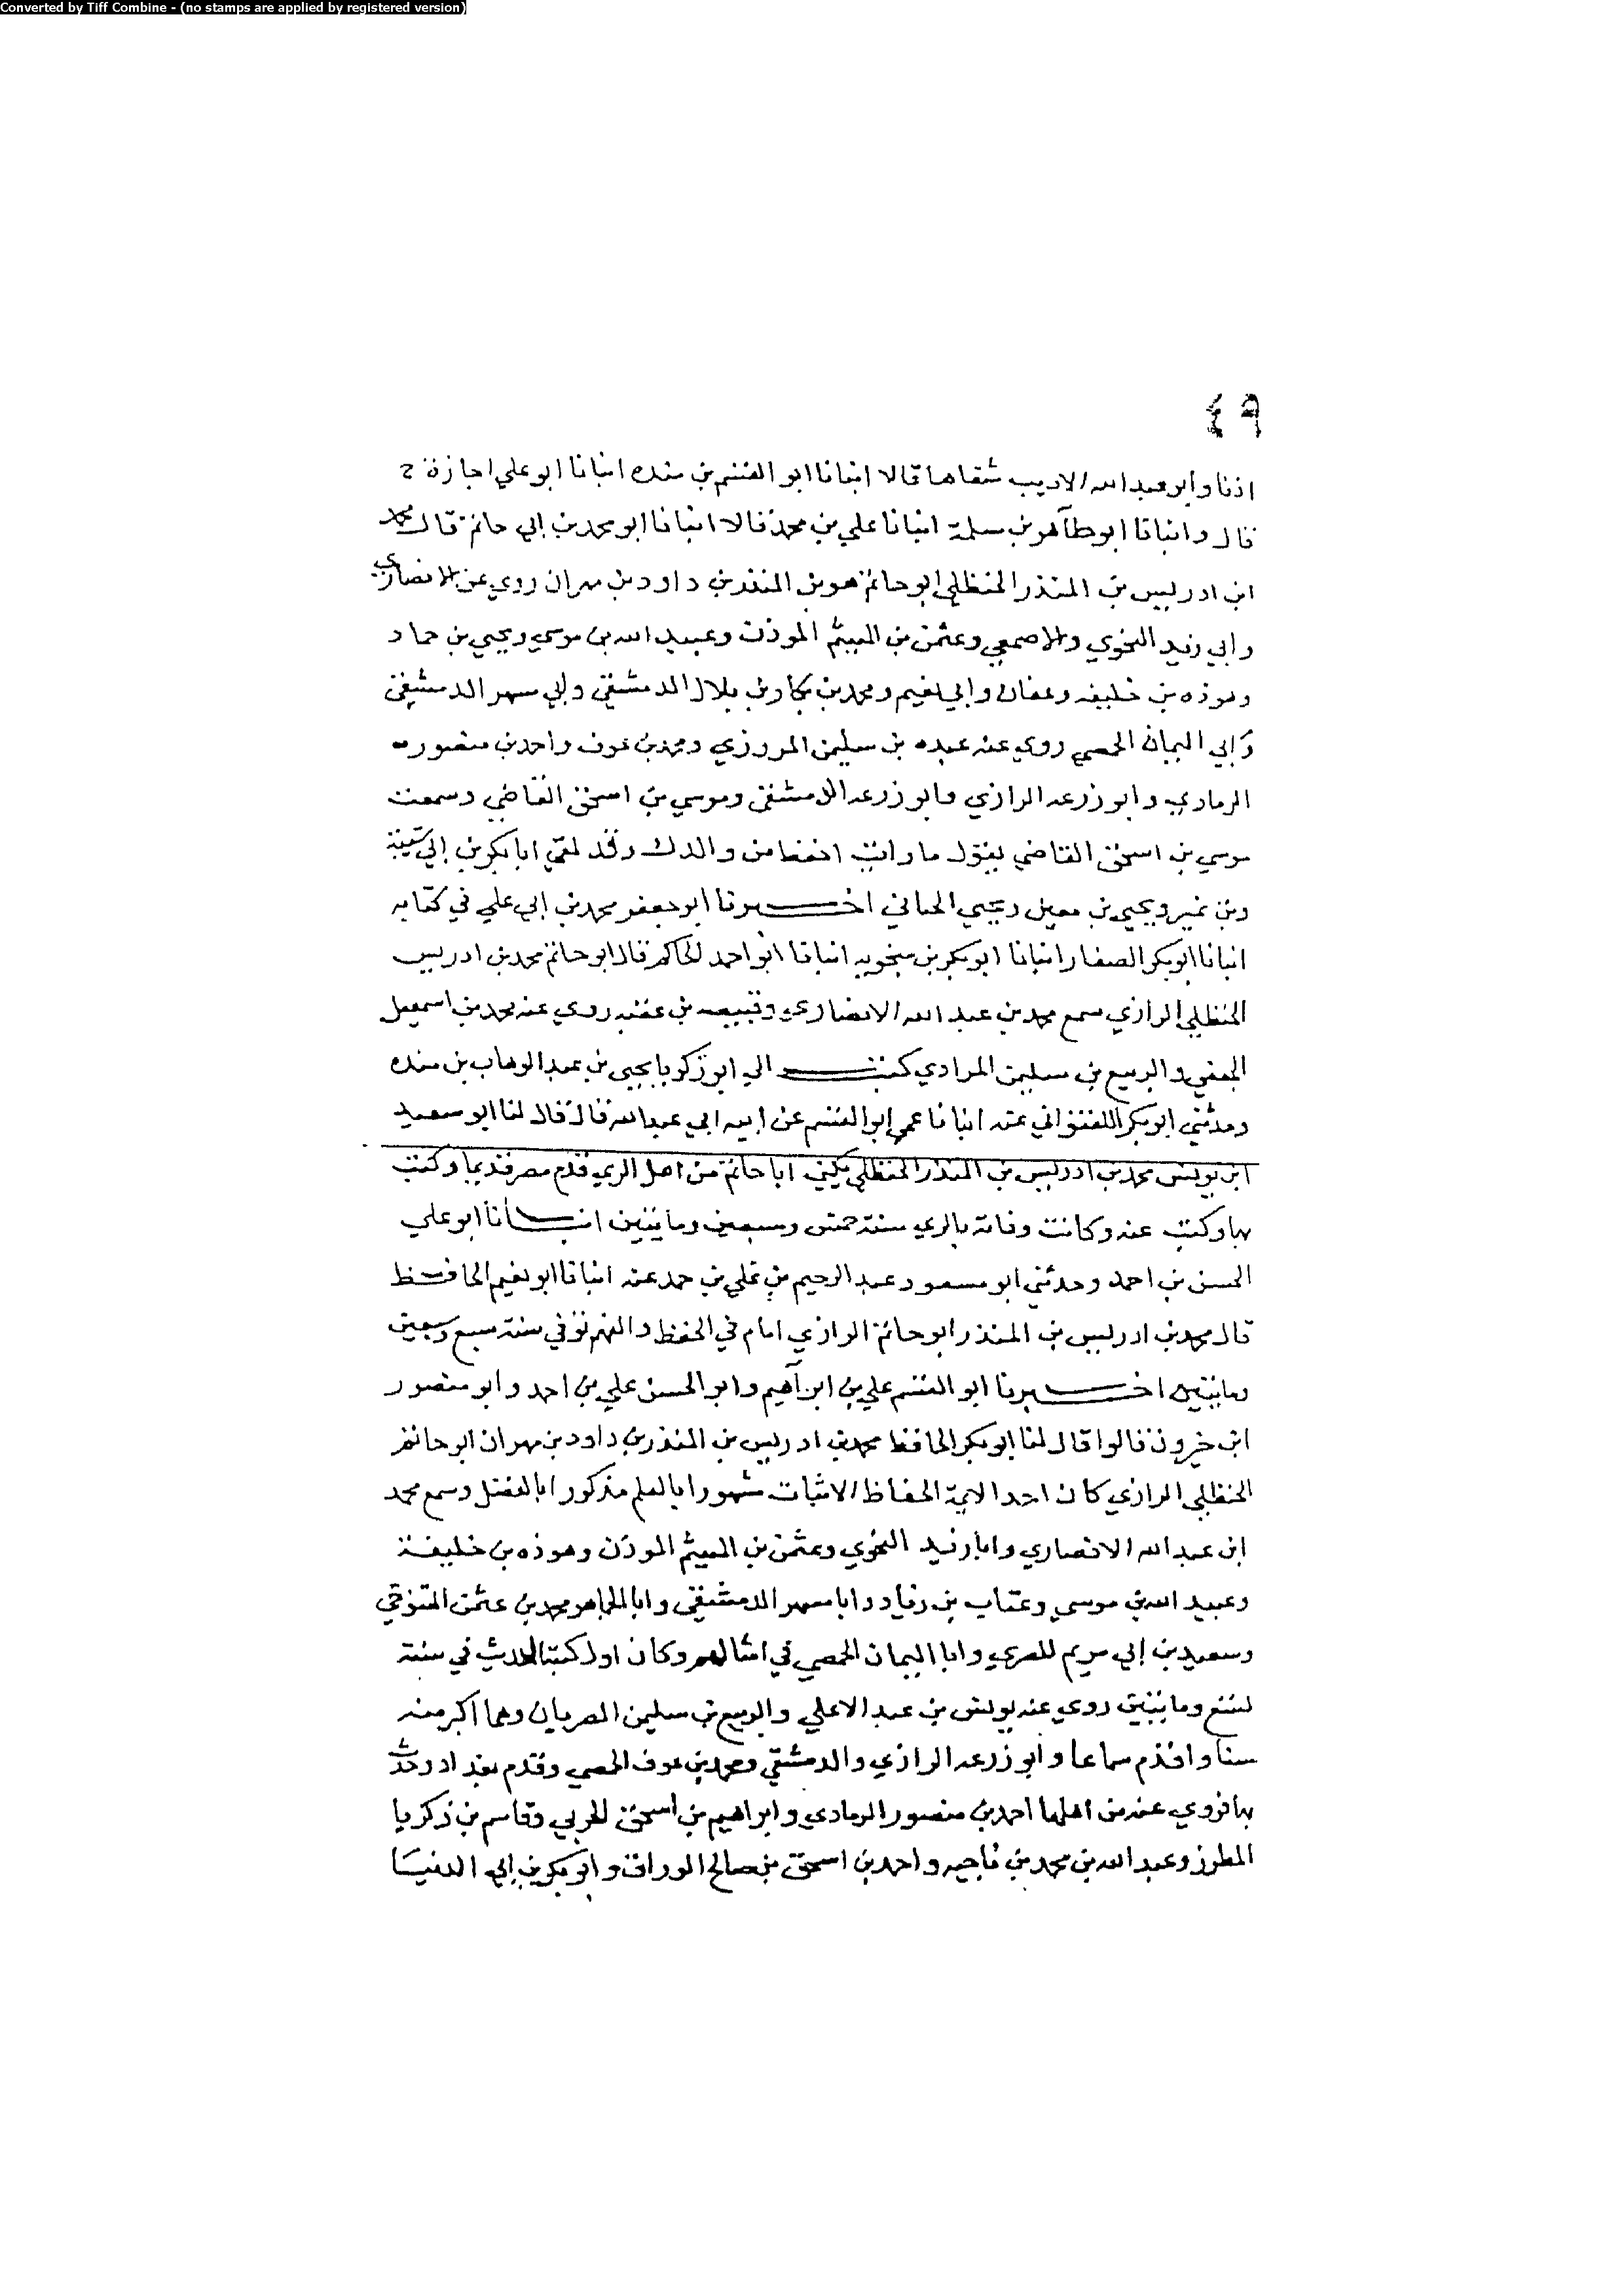 Converted by Tiff Combine - (no stamps are applied by registered version)
٤٩
اذنا وابو عبد الله الاديب شفاها قالا انبانا ابو القسم بن منده انبانا ابو علي اجازة ح
قال وانبانا ابو طاهر بن سلمة انبانا علي بن محمد قالا انبانا ابو محمد بن ابي حاتم قال محمد
ابن ادريس بن المنذر الحنظلي ابو حاتم هو بن المنذر بن داود بن مهران روي عن الانصاري
وابي زيد النحوي والاصمعي وعثمن بن الهيثم الموذن وعبيد الله بن موسي ويحيي بن حماد
وهوذه بن خليفه وعفان وابي نعيم ومحمد بن بكار بن بلال الدمشقي وابي مسهر الدمشقي
وابي اليمان الحمصي روي عنه عبده بن سليمن المروزي ومحمد بن عوف واحمد بن منصور
الرمادي وابو زرعه الرازي وابو زرعه الدمشقي وموسي بن اسحق القاضي وسمعت
موسي بن اسحق القاضي يقول ما رايت احفظ من والدك وقد لقي ابا بكر بن ابي شيبة
وبن نمير ويحيي بن معين ويحيي الحماني اخبرنا ابو جعفر محمد بن ابي علي في كتابه
انبانا ابو بكر الصفار انبانا ابو بكر بن منجويه انبانا ابو احمد الحاكم قال ابو حاتم محمد بن ادريس
الحنظلي الرازي سمع محمد بن عبد الله الانصاري وقبيصه بن عقبه روي عنه محمد بن اسمعيل
الجعفي والربيع بن سليمن المرادي كتب الي ابو زكريا يحيي بن عبد الوهاب بن منده
وحدثني ابو بكر اللفتواني عنه انبانا عمي ابو القسم عن ابيه ابي عبد الله قال قال لنا ابو سعيد
ابن يونس محمد بن ادريس بن المنذر الحنظلي يكني ابا حاتم من اهل الري قدم مصر قديما وكتب
بها وكتب عنه وكانت وفاته بالري سنة خمس وسبعين ومايتين انبانا ابو علي
الحسن بن احمد وحدثني ابو مسعود عبد الرحيم بن علي بن حمد عنه انبانا ابو نعيم الحافظ
قال محمد بن ادريس بن المنذر ابو حاتم الرازي امام في الحفظ والفهم توفي سنة سبع وسبعين
ومايتين اخبرنا ابو القسم علي بن ابراهيم وابو الحسن علي بن احمد وابو منصور
ابن خيرون قالوا قال لنا ابو بكر الحافظ محمد بن ادريس بن المنذر بن داود بن مهران ابو حاتم
الحنظلي الرازي كان احد الايمة الحفاظ الاثبات مشهورا بالعلم مذكورا بالفضل وسمع محمد
ابن عبد الله الانصاري وابا زيد النحوي وعثمن بن الهيثم الموذن وهوذه بن خليفة
وعبيد الله بن موسي وعتاب بن زياد وابا مسهر الدمشقي وابا الجماهر محمد بن عثمن التنوخي
وسعيد بن ابي مريم المصري وابا اليمان الحمصي في امثالهم وكان اول كتبه الحديث في سنة
تسع ومايتين روي عنه يونس بن عبد الاعلي والربيع بن سليمن المصريان وهما اكبر منه
سنا واقدم سماعا وابو زرعه الرازي والدمشقي ومحمد بن عوف الحمصي وقدم بغداد وحدث
بها فروي عنه من اهلها احمد بن منصور الرمادي وابراهيم بن اسحق الحربي وقاسم بن زكريا
المطرز وعبد الله بن محمد بن ناجيه واحمد بن اسحق بن صالح الوراق وابو بكر بن ابي الدنيا